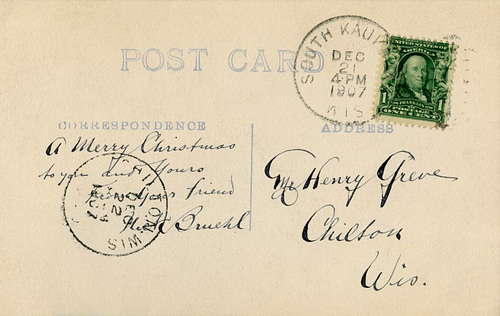 POST CARD
SOUTH KAUK
DEC
21
4-PM
1907
WIS
UNITED STATES OF
AMERICA
1 1
FRANKLIN
POSTAGE
ONE CENT
CORRESPONDENCE
ADDRESS
A Merry Christmas
to you and Yours
Your friend
Bruehl
CHILTON
DEC
WIS
Mr Henry Greve
Chilton
Wis.